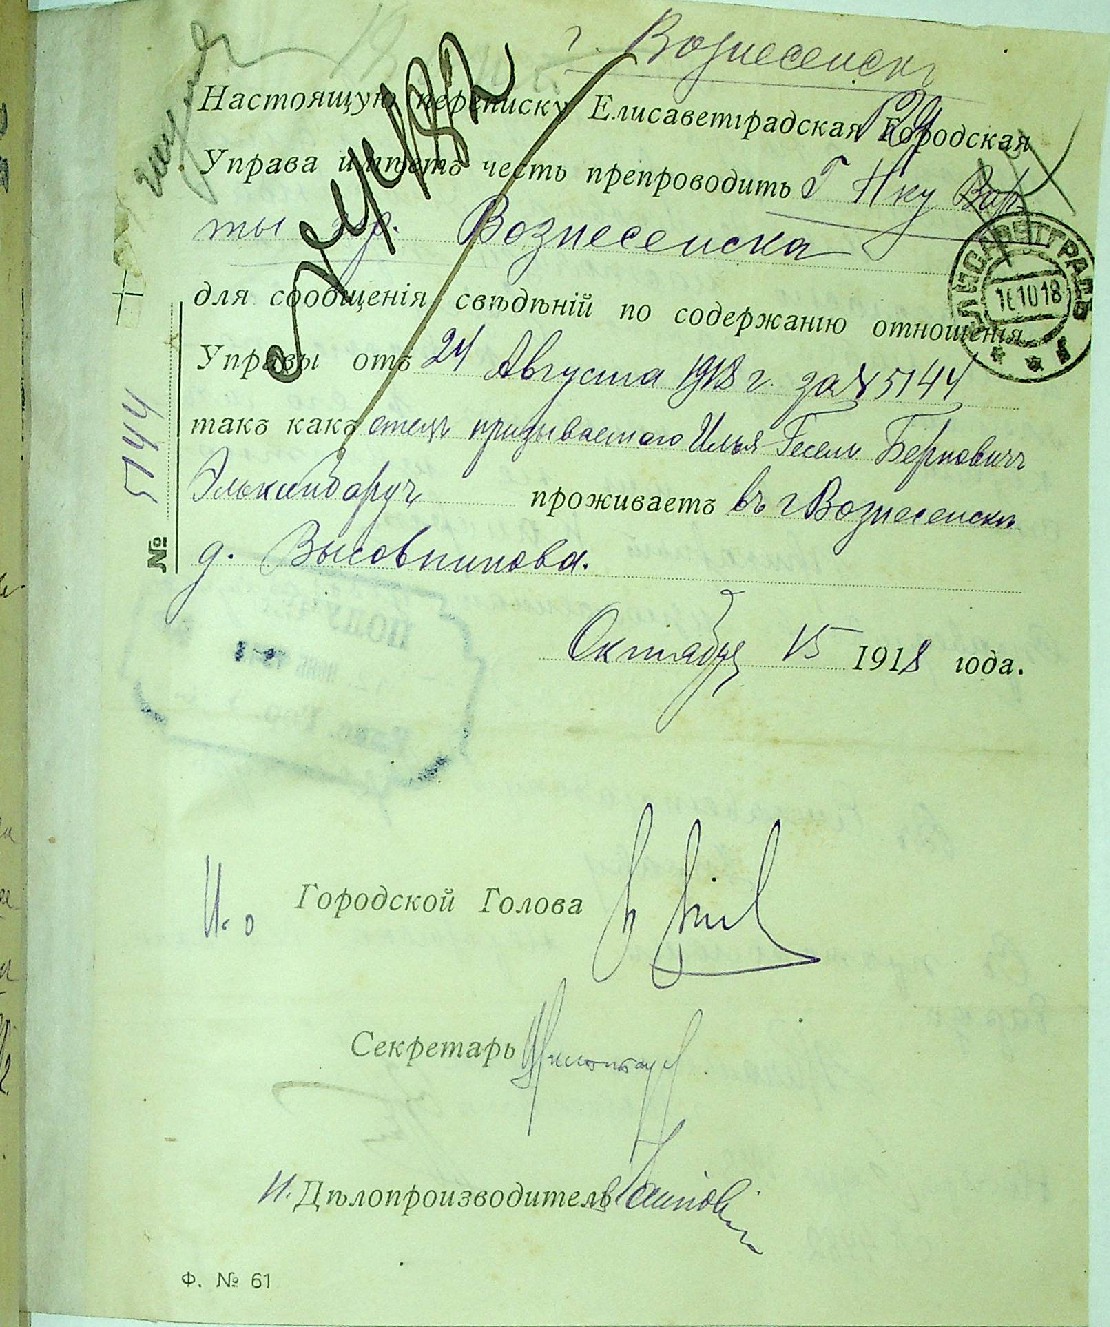 г. Вознесенскъ
Настоящую переписку Елисаветградская Городская
Управа имѣетъ честь препроводить Г Н-ку Вар-
ты гр. Вознесенска
для сообщенія свѣдѣній по содержанію отношенія
Управы отъ 24 Августа 1918 г. за № 5144
такъ какъ отецъ призываемаго Илья Гесель Берковичъ
проживаетъ въ г Вознесенскѣ
д. Высовникова.
№ 5144
ЕЛИСАВЕТГРАДЪ
16 10 18
Октября 15 1918 года.
И. о Городской Голова
Секретарь
И. Дѣлопроизводитель
Ф. № 61